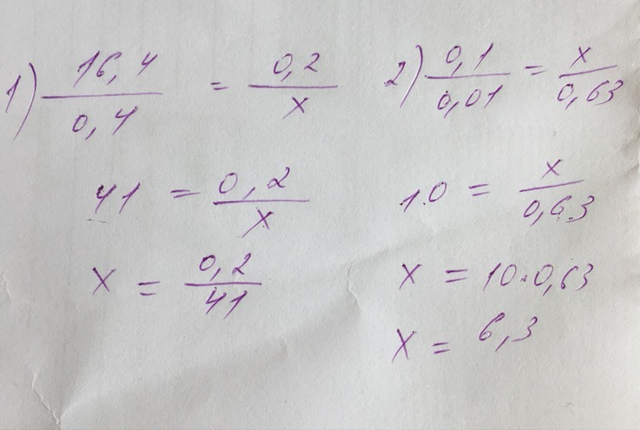 1) 16,4 / 0,4 = 0,2 / x
41 = 0,2 / x
x = 0,2 / 41
2) 0,1 / 0,01 = x / 0,63
10 = x / 0,63
x = 10·0,63
x = 6,3